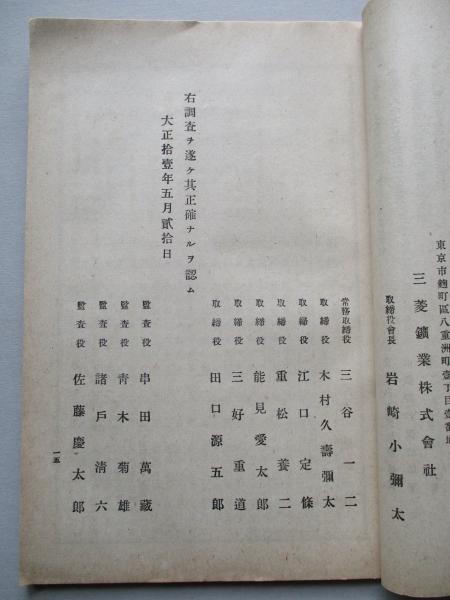 東京市麴町區八重洲町壹丁目壹番地
三菱鑛業株式會社
取締役會長 岩崎小彌太
常務取締役 三谷一二
取締役 木村久壽彌太
取締役 江口定條
取締役 重松養二
取締役 能見愛太郎
取締役 三好重道
取締役 田口源五郎
右調査ヲ遂ケ其正確ナルヲ認ム
大正拾壹年五月貳拾日
監査役 串田萬藏
監査役 靑木菊雄
監査役 諸戶淸六
監査役 佐藤慶太郎
一五